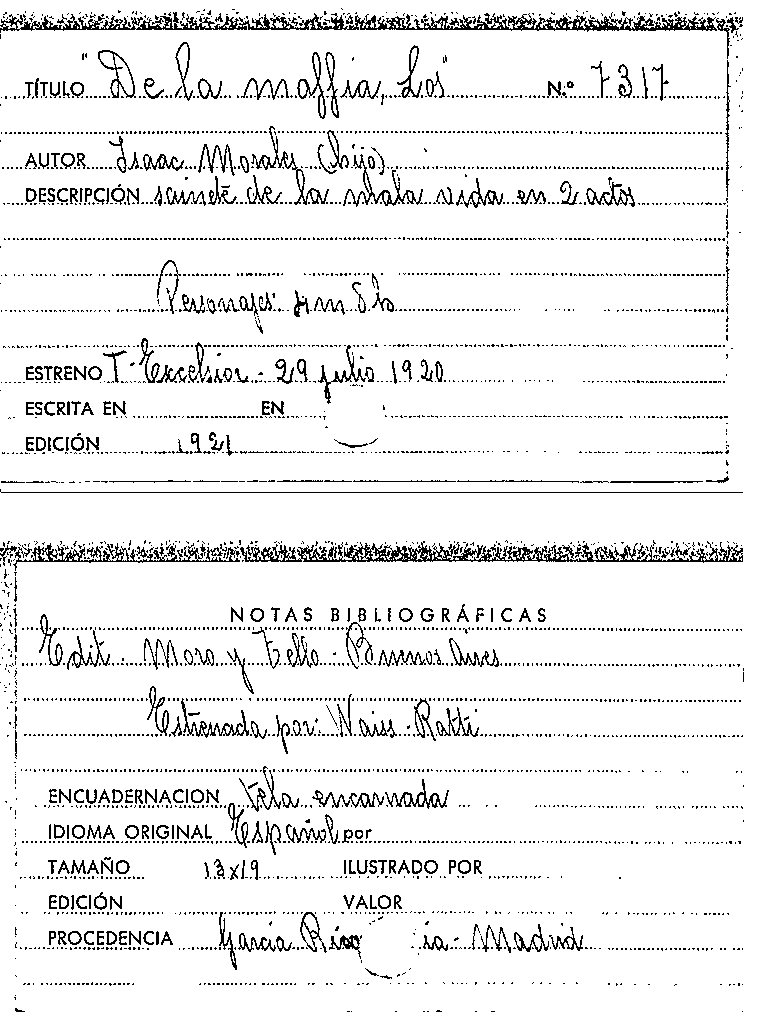 TÍTULO "De la maffia, Los" N.º 7317
AUTOR Isaac Morales (hijo)
DESCRIPCIÓN sainete de la mala vida en 2 actos
Personajes: 4 m 8 h
ESTRENO T. Excelsior - 29 julio 1920
ESCRITA EN EN
EDICIÓN 1921
NOTAS BIBLIOGRÁFICAS
Edit. Moro y Tello - Buenos Aires
Estrenada por: Waiss - Ratti
ENCUADERNACION tela encarnada
IDIOMA ORIGINAL Español por
TAMAÑO 13x19 ILUSTRADO POR
EDICIÓN VALOR
PROCEDENCIA García Rico ia - Madrid